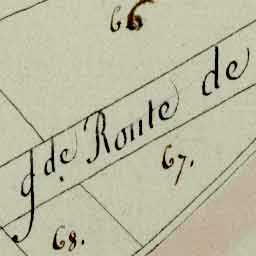 66
gde. Route de
67.
68.